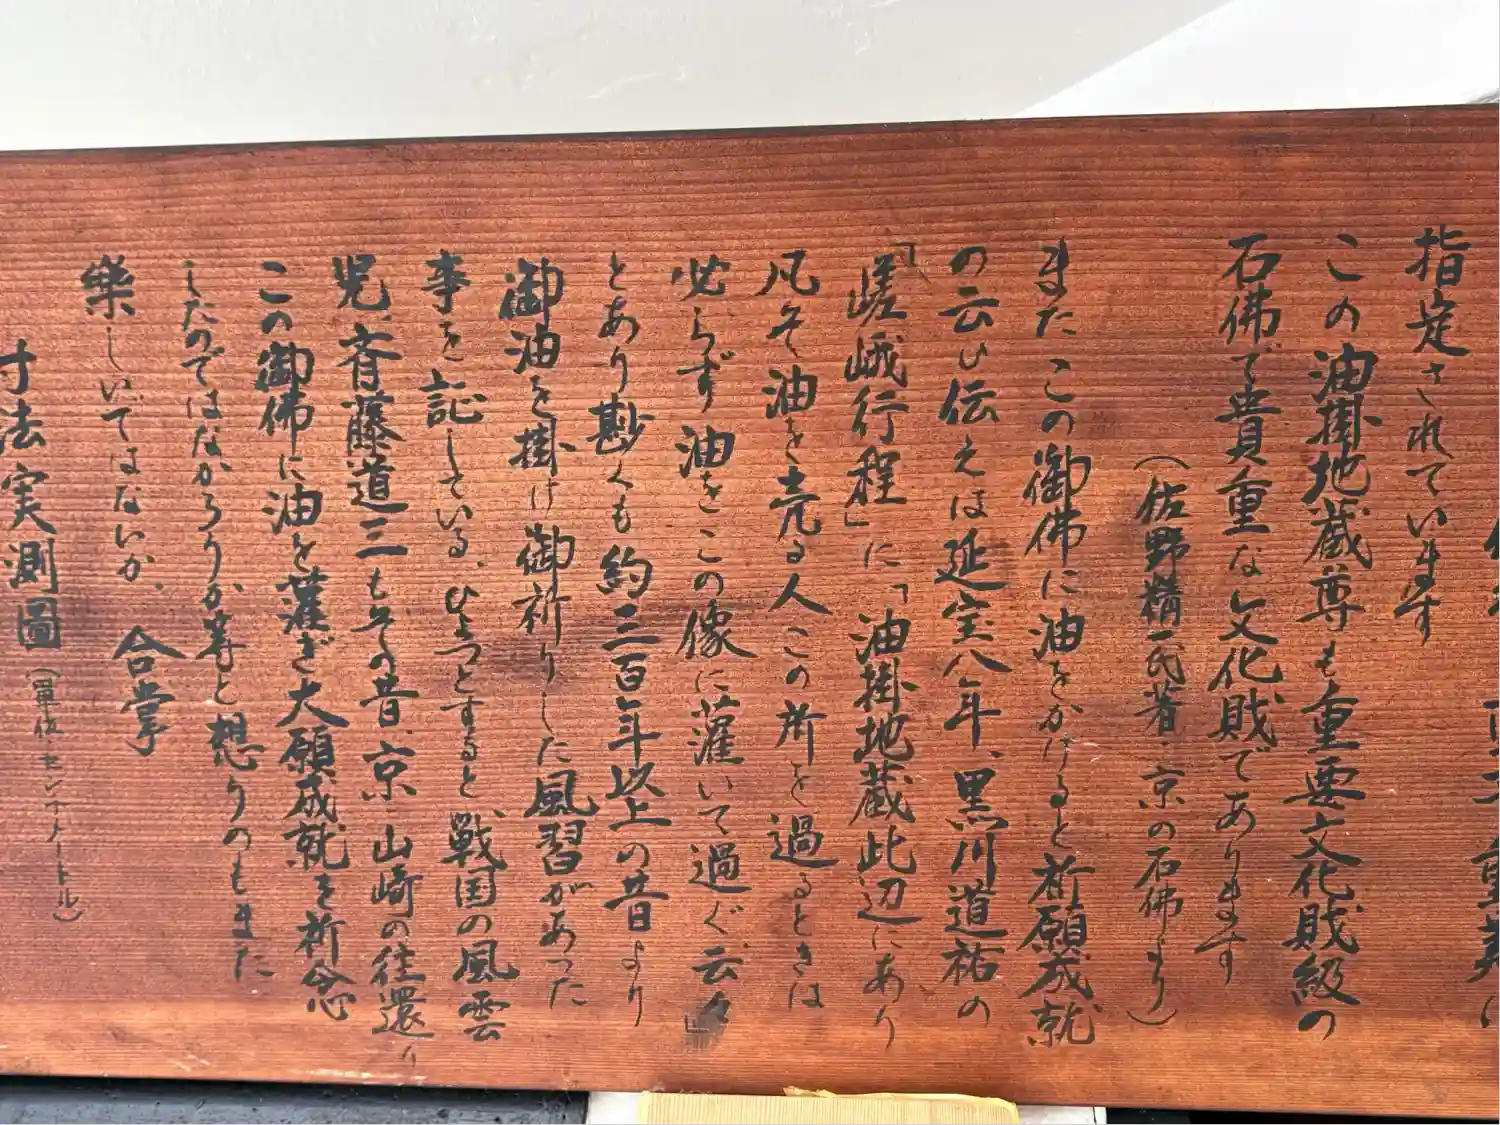 指定されています
この油掛地蔵尊も重要文化財級の
石佛で貴重な文化財であります
(佐野精一氏著・京の石佛より)
またこの御佛に油をかけると祈願成就
の云ひ伝えは延宝八年、黒川道祐の
「嵯峨行程」に「油掛地蔵此辺にあり
凡そ油を売る人この所を過るときは
必らず油をこの像に灌いで過ぐ云々」
とあり尠くも約三百年以上の昔より
御油を掛け御祈りした風習があった
事を記している、ひょっとすると戦国の風雲
児、斉藤道三もその昔、京・山崎の往還り
この御佛に油を灌ぎ大願成就を祈念
したのではなかろうか等と想うのもまた
楽しいではないか、 合掌
寸法実測圖(単位・センチメートル)